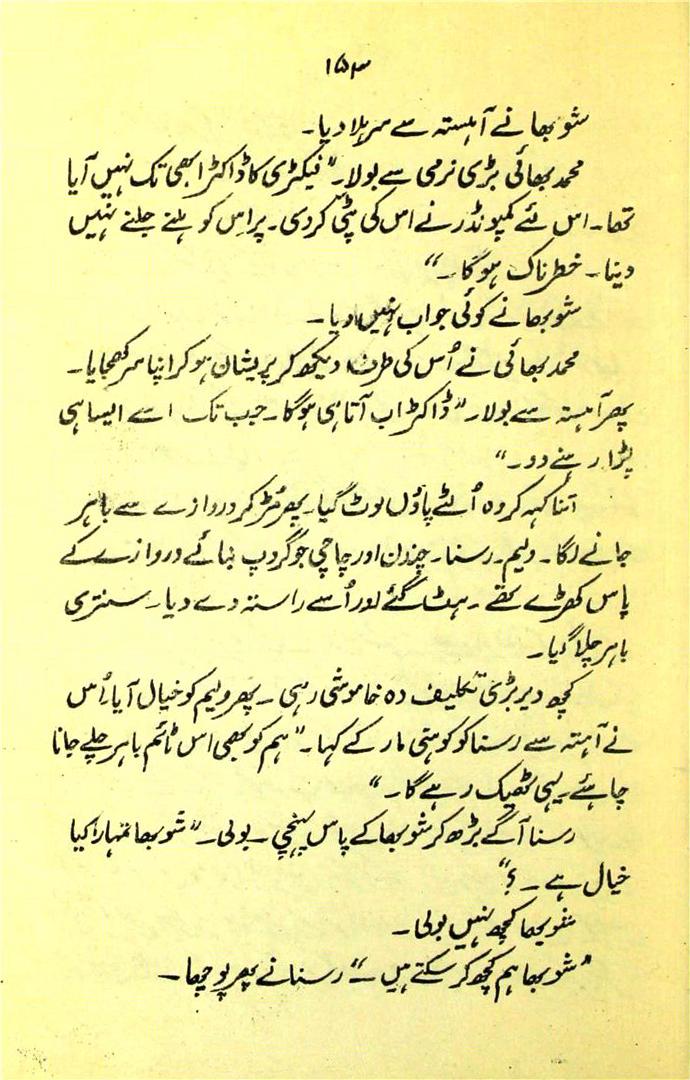 ۱۵۳
شوبھا نے آہستہ سے سر ہلا دیا۔
محمد بھائی بڑی نرمی سے بولا۔ "فیکٹری کا ڈاکٹر ابھی تک نہیں آیا
تھا۔ اس لئے کمپونڈر نے اس کی پٹی کردی۔ پر اِس کو ہلنے جلنے نہیں
دینا۔ خطرناک ہوگا۔"
شوبھا نے کوئی جواب نہیں دیا۔
محمد بھائی نے اُس کی طرف دیکھ کر پریشان ہو کر اپنا سر کھجایا۔
پھر آہستہ سے بولا۔ "ڈاکٹر اب آتا ہی ہوگا۔ جب تک اسے ایسا ہی
پڑا رہنے دو۔"
اتنا کہہ کر وہ اُلٹے پاؤں لوٹ گیا۔ پھر مُڑ کر دروازے سے باہر
جانے لگا۔ ولیم۔ رسنا۔ چندن اور چاچی جو گروپ بنائے دروازے کے
پاس کھڑے تھے۔ ہٹ گئے اور اُسے راستہ دے دیا۔ سنتری
باہر چلا گیا۔
کچھ دیر بڑی تکلیف دہ خاموشی رہی۔ پھر ولیم کو خیال آیا۔ اُس
نے آہستہ سے رسنا کو کوہنی مار کے کہا۔ "ہم کو بھی اس ٹائم باہر چلے جانا
چاہئے۔ یہی ٹھیک رہے گا۔"
رسنا آگے بڑھ کر شوبھا کے پاس پہنچی۔ بولی۔ "شوبھا تمہارا کیا
خیال ہے۔؟"
شوبھا کچھ نہیں بولی۔
"شوبھا ہم کچھ کر سکتے ہیں۔" رسنا نے پھر پوچھا۔